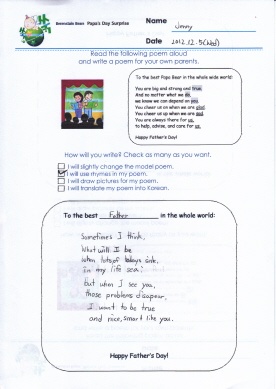 Berenstain Bear Papa's Day Surprise
Name Jenny
Date 2012.12.5(Wed)
Read the following poem aloud
and write a poem for your own parents.
To the best Papa Bear in the whole wide world!
You are big and strong and true.
And no matter what we do,
we know we can depend on you.
You cheer us on when we are glad.
You cheer us up when we are sad.
You are always there for us,
to help, advise, and care for us.
Happy Father's Day!
How will you write? Check as many as you want.
I will slightly change the model poem.
I will use rhymes in my poem.
I will draw pictures for my poem.
I will translate my poem into Korean.
To the best Father in the whole world:
Sometimes I think,
What will I be
when lots of sink,
in my life sea:
but when I see you,
those problems disapear,
I want to be true
and nice, smart like you.
Happy Father's Day!